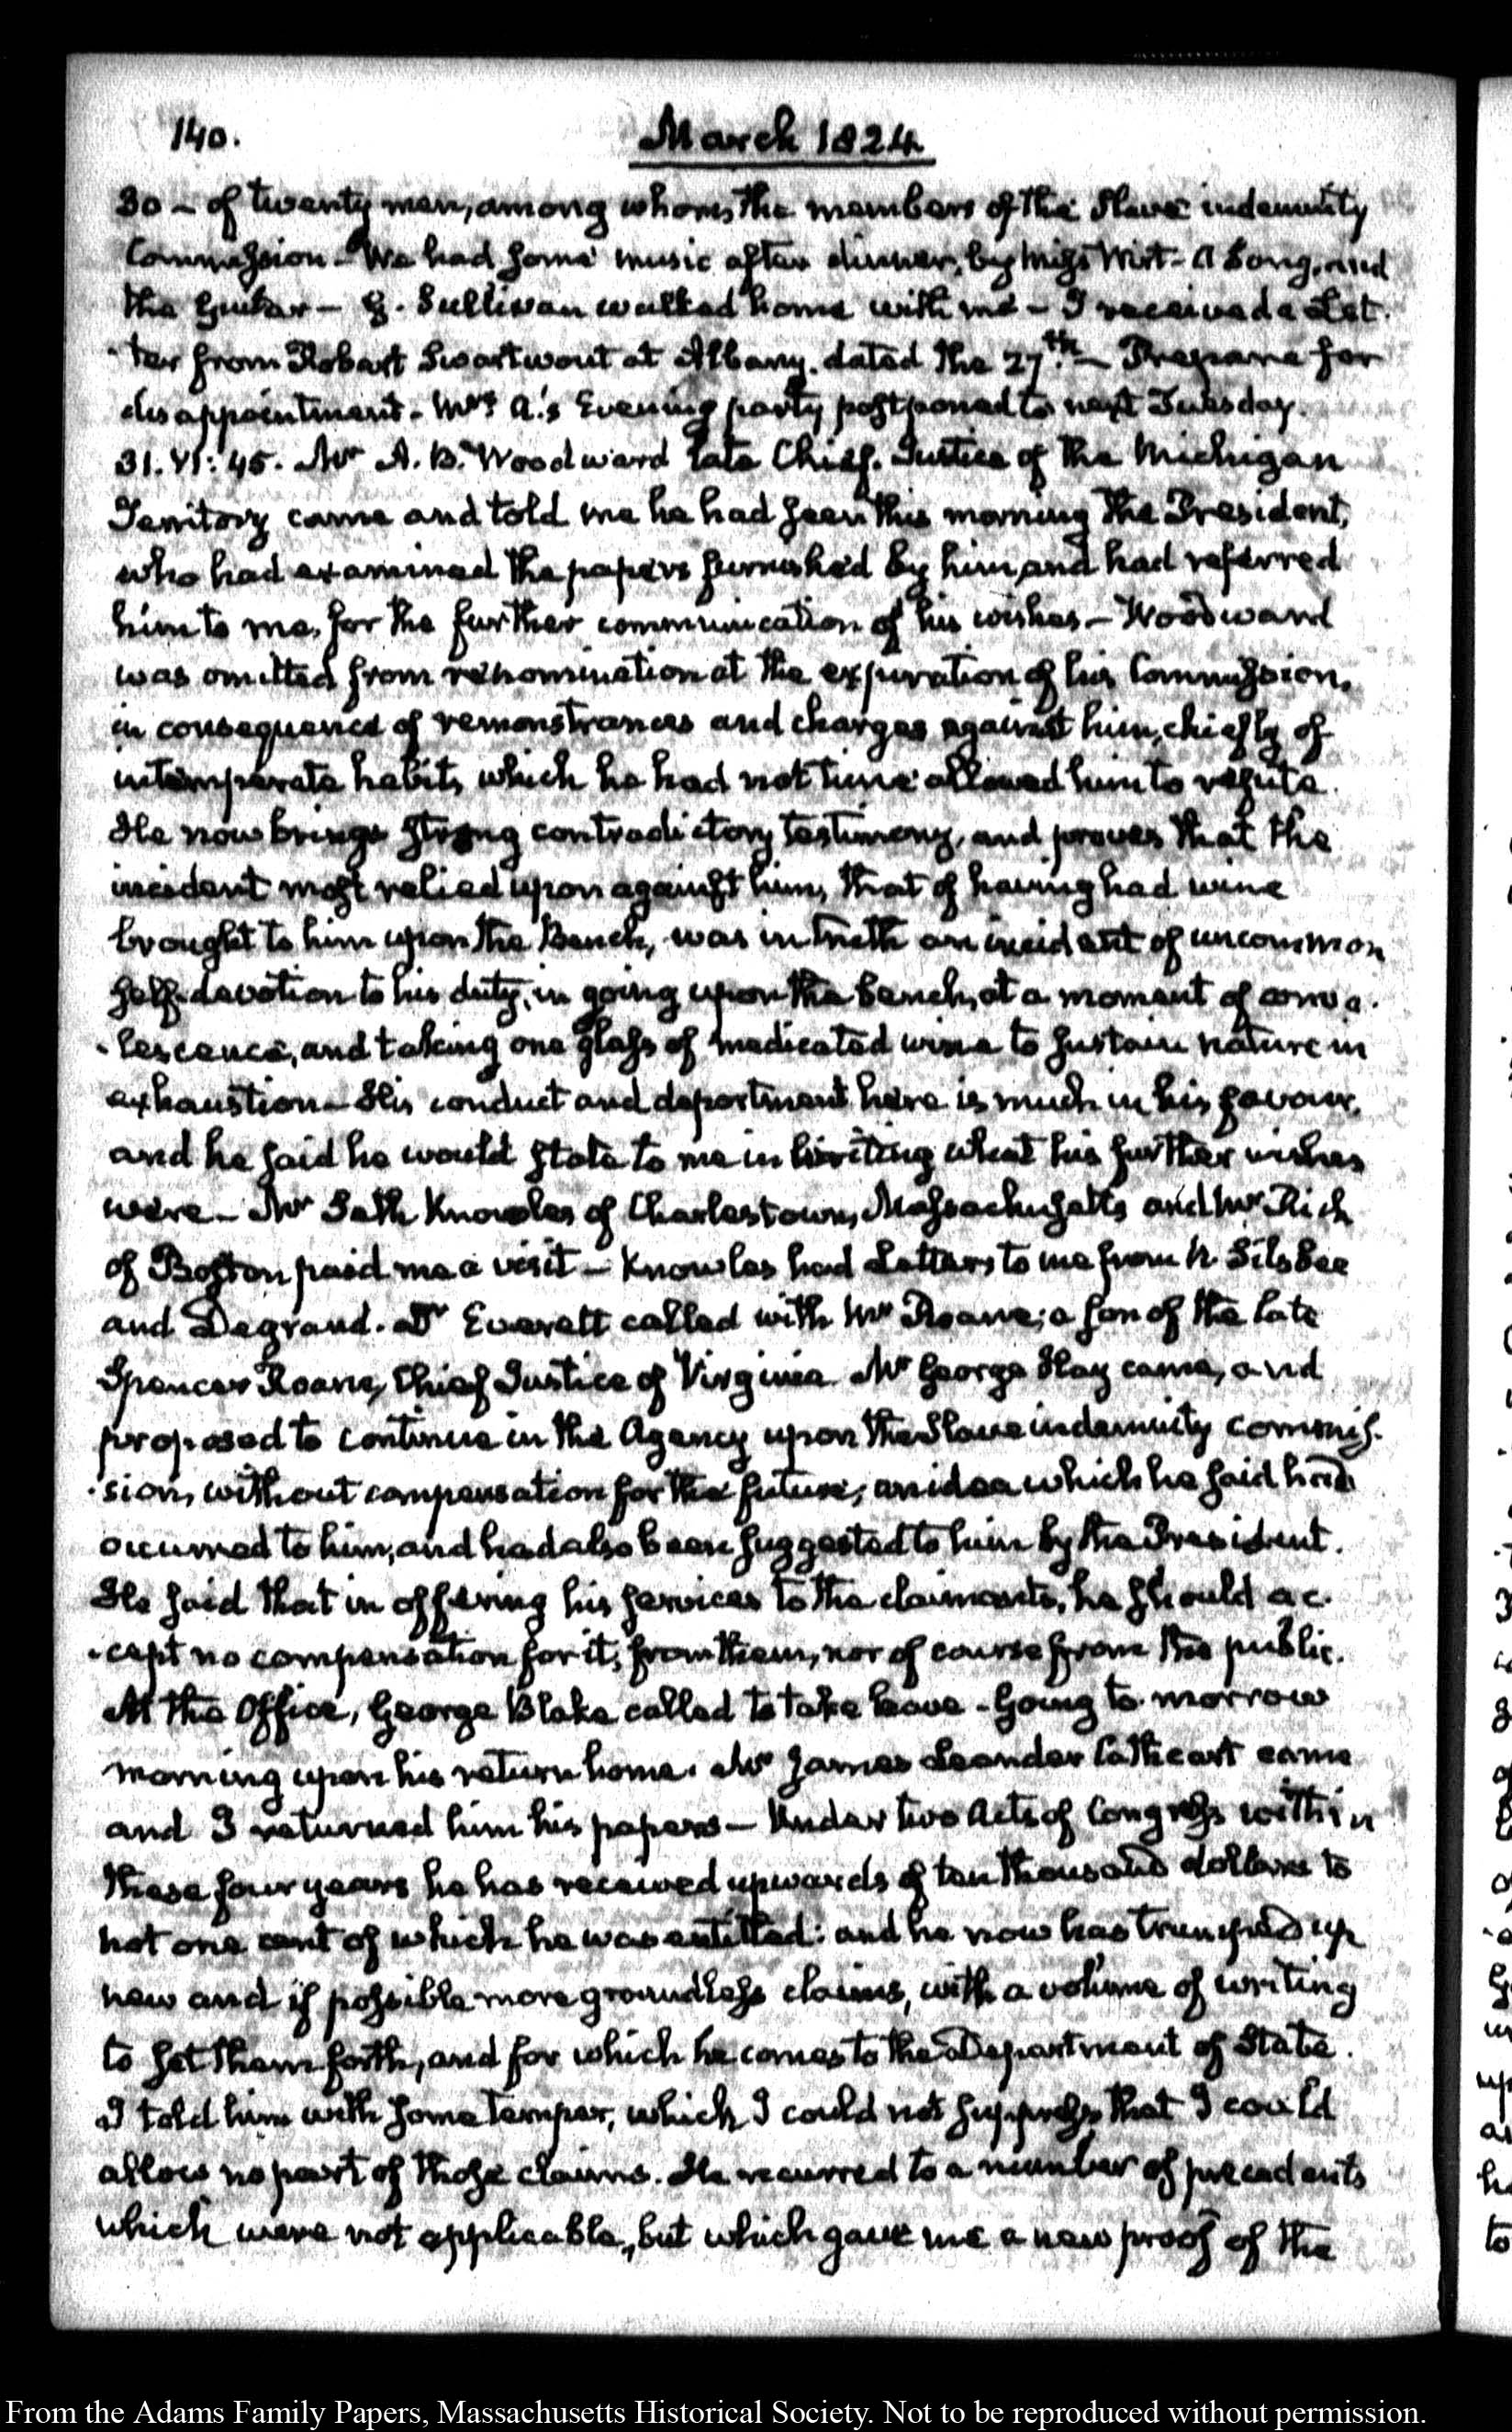 140.
March 1824
30 – of twenty men, among whom, the members of the Slave indemnity
Commission – We had some music after dinner, by Miss Wirt – A Song, and
the Guitar – G. Sullivan walked home with me – I received a Let-
-ter from Robert Swartwout at Albany. dated the 27th. – Prepare for
disappointment – Mrs A.'s Evening party postponed to next Tuesday.
31. VI: 45. Mr A. B. Woodward late Chief Justice of the Michigan
Territory came and told me he had seen this morning the President,
who had examined the papers furnished by him, and had referred
him to me, for the further communication of his wishes – Woodward
was omitted from renomination at the expiration of his Commission,
in consequence of remonstrances and charges against him, chiefly of
intemperate habits, which he had not time allowed him to refute.
He now brings strong contradictory testimony, and proves that the
incident most relied upon against him, that of having had wine
brought to him upon the Bench, was in truth an incident of uncommon
self-devotion to his duty, in going upon the bench, at a moment of conva-
-lescence, and taking one glass of medicated wine to sustain nature in
exhaustion – His conduct and deportment here is much in his favour,
and he said he would state to me in writing what his further wishes
were – Mr Seth Knowles of Charlestown, Massachusetts and Mr Rich
of Boston paid me a visit – Knowles had Letters to me from N. Silsbee
and Degrand. Dr Everett called with Mr Roane; a son of the late
Spencer Roane, Chief Justice of Virginia Mr George Hay came, and
proposed to continue in the Agency upon the Slave indemnity commis-
-sion, without compensation for the future; an idea which he said had
occurred to him, and had also been suggested to him by the President.
He said that in offering his services to the claimants, he should ac-
-cept no compensation for it, from them, nor of course from the public.
At the Office, George Blake called to take leave – Going to-morrow
morning upon his return home. Mr James Leander Cathcart came
and I returned him his papers – Under two Acts of Congress within
these four years he has received upwards of ten thousand dollars to
not one cent of which he was entitled: and he now has trumped up
new and if possible more groundless claims, with a volume of writing
to set them forth, and for which he comes to the Department of State.
I told him with some temper, which I could not suppress, that I could
allow no part of those claims. He recurred to a number of precedents
which were not applicable, but which gave me a new proof of the
From the Adams Family Papers, Massachusetts Historical Society. Not to be reproduced without permission.